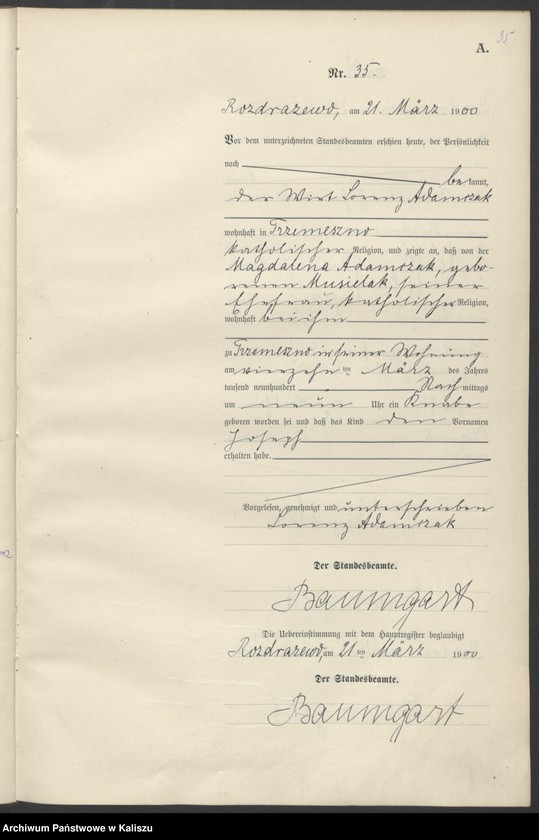 35
A.
Nr. 35.
Rozdrazewo, am 21. März 1900
Vor dem unterzeichneten Standesbeamten erschien heute, der Persönlichkeit
nach
bekannt,
der Wirt Lorenz Adamczak
wohnhaft in Trzemeszno
katholischer Religion, und zeigte an, daß von der
Magdalena Adamczak, gebo-
renen Musielak, seiner
Ehefrau, katholischer Religion,
wohnhaft bei ihm
zu Trzemeszno in seiner Wohnung
am vierzehnten März des Jahres
tausend neunhundert Nachmittags
um neun Uhr ein Knabe
geboren worden sei und daß das Kind den Vornamen
Joseph
erhalten habe.
Vorgelesen, genehmigt und unterschrieben
Lorenz Adamczak
Der Standesbeamte.
Baumgart
Die Uebereinstimmung mit dem Hauptregister beglaubigt
Rozdrazewo, am 21ten März 1900
Der Standesbeamte.
Baumgart
Archiwum Państwowe w Kaliszu